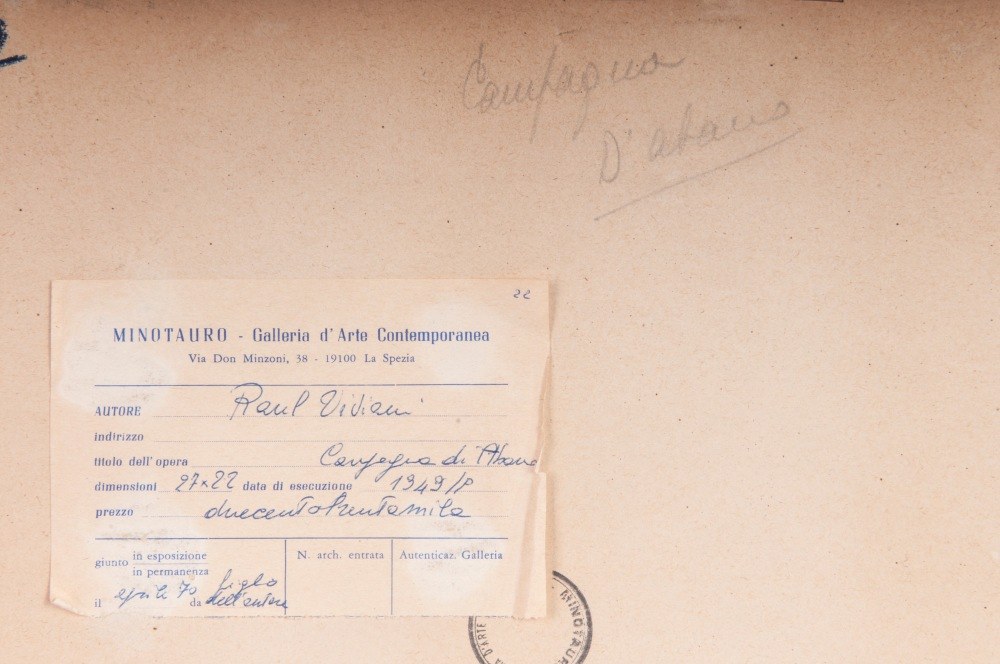 Campagna
D'abano
22
MINOTAURO - Galleria d'Arte Contemporanea
Via Don Minzoni, 38 - 19100 La Spezia
AUTORE Raul Viviani
indirizzo
titolo dell'opera Campagna di Abano
dimensioni 27×22 data di esecuzione 1949/P
prezzo duecentotrentamila
giunto in esposizione
in permanenza
N. arch. entrata
Autenticaz. Galleria
il aprile 70 da figlio
dell'autore
D'ARTE MINOTAUR